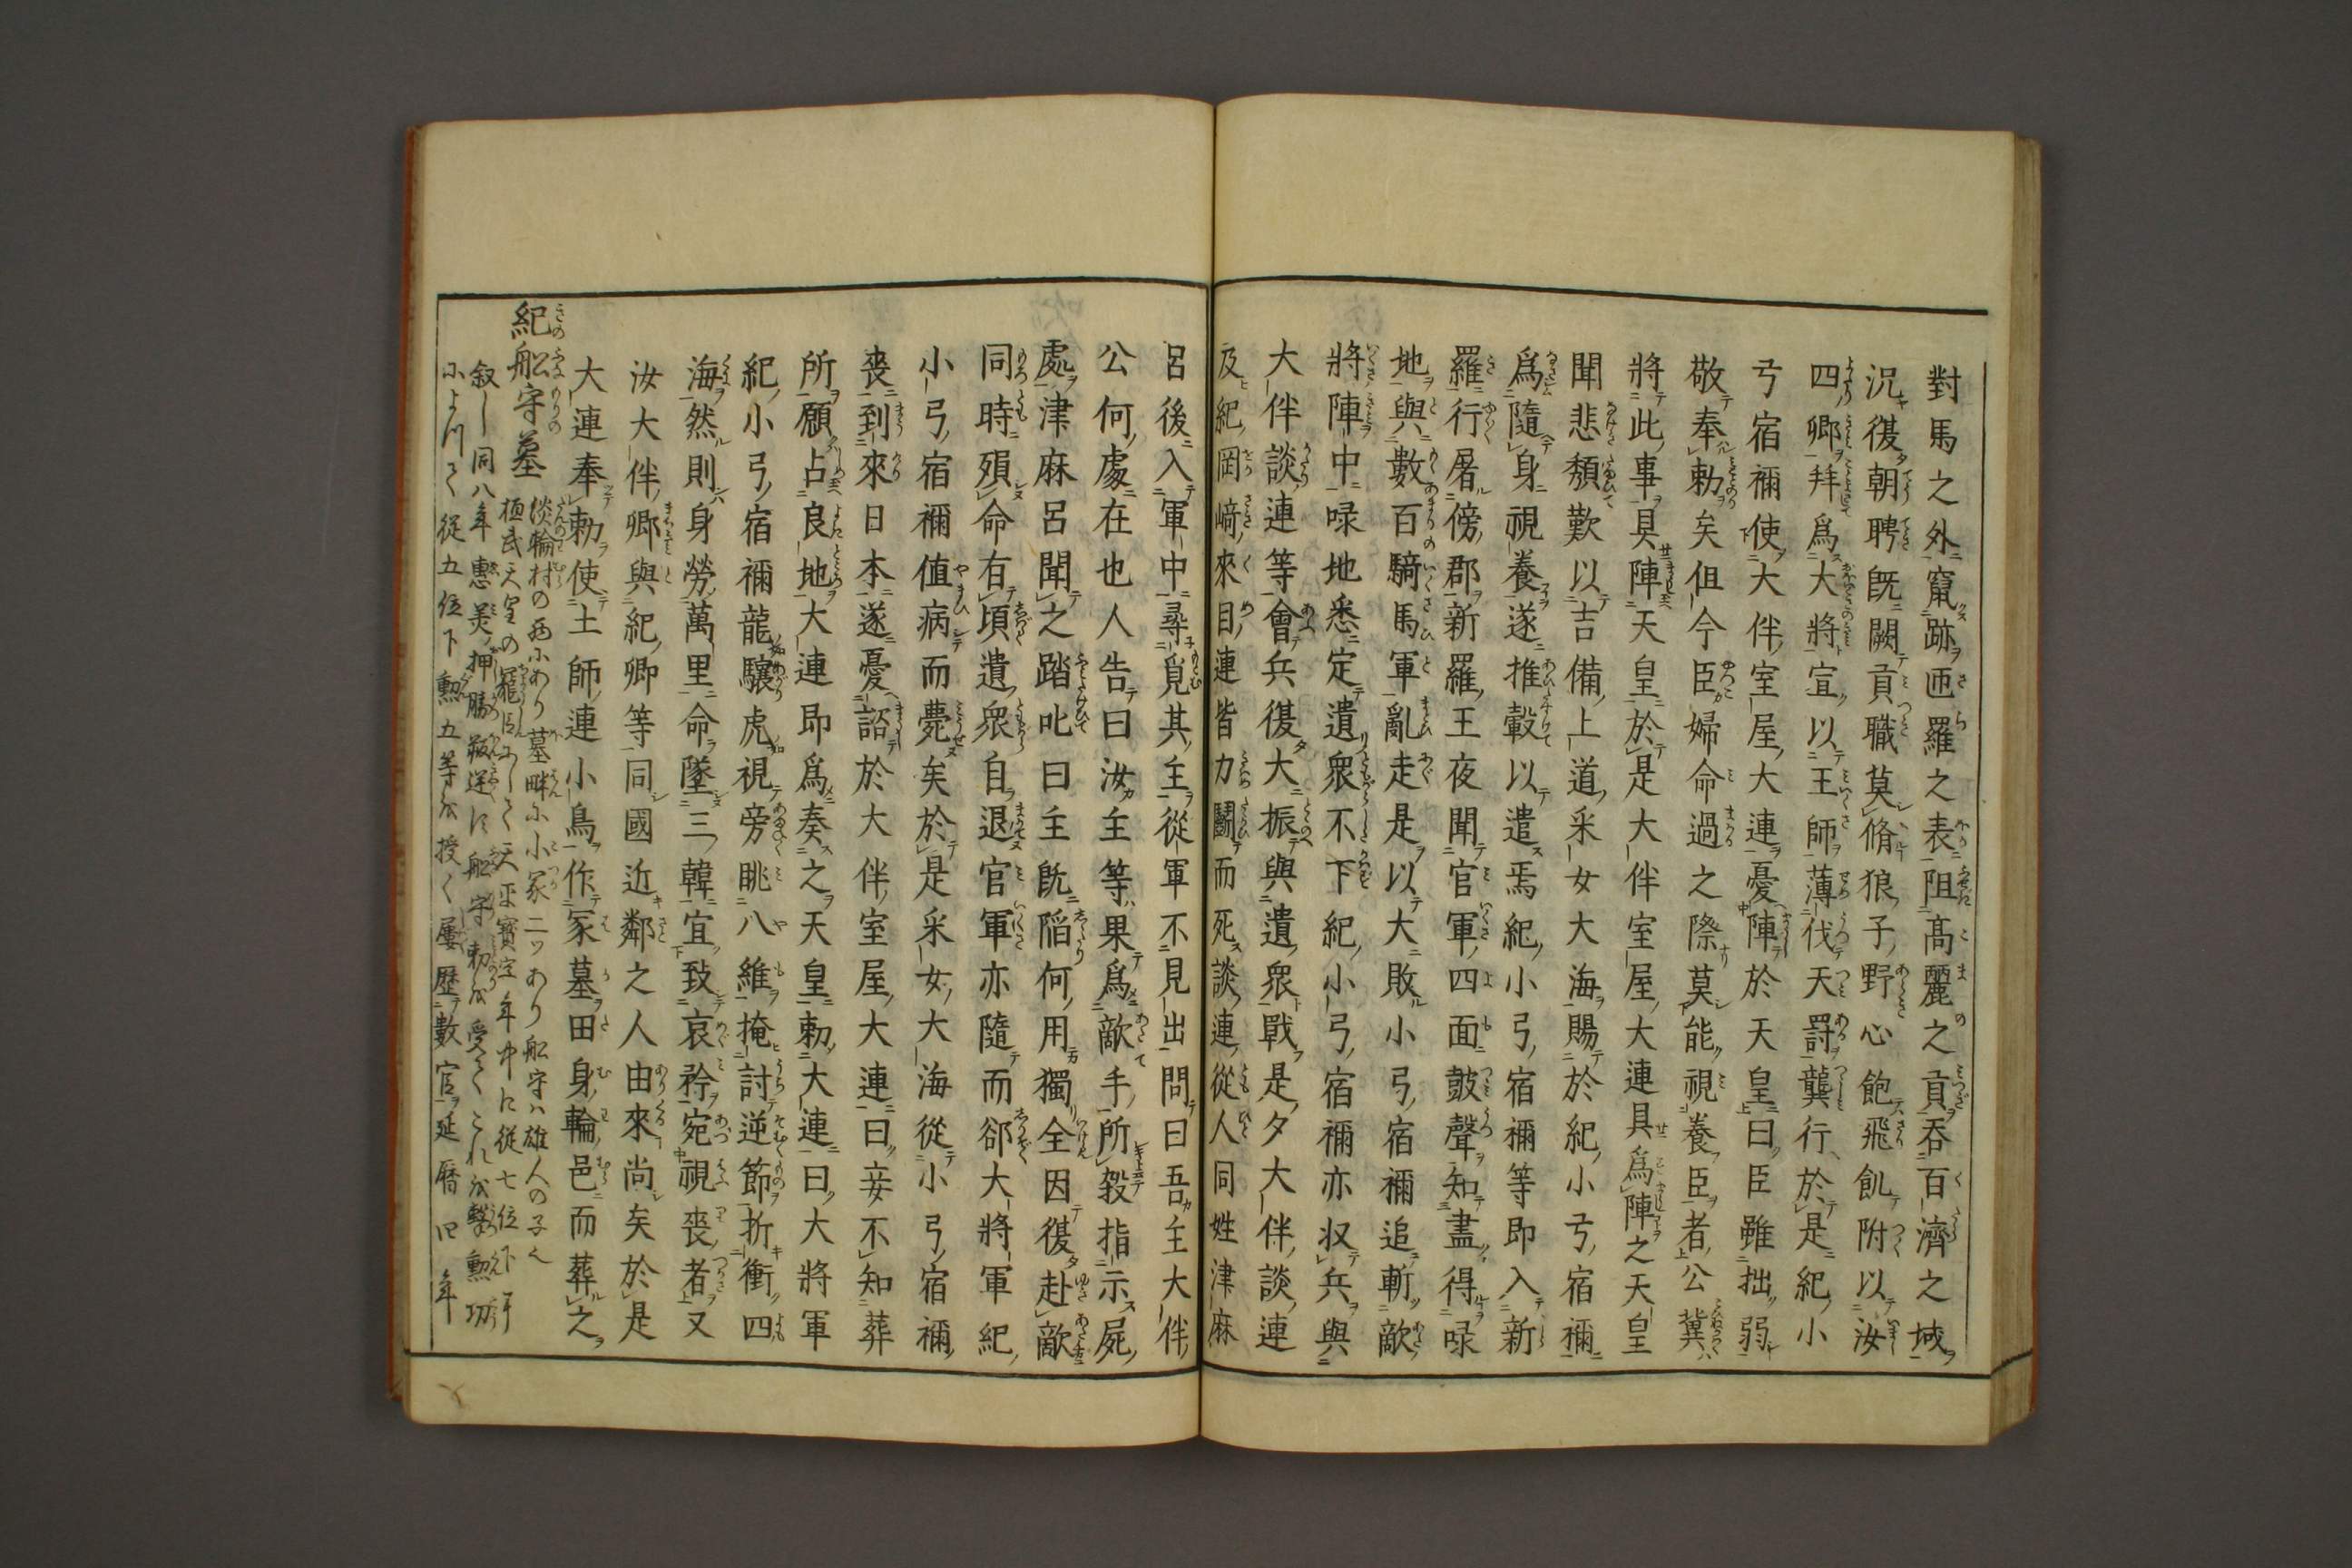 對馬之外竄跡匝羅之表阻髙麗之貢吞百濟之城
況復朝聘既闕貢職莫脩狼子野心飽飛飢附以汝
四卿拜爲大將宜以王師薄伐天罸龔行於是紀小
弓宿禰使大伴室屋大連憂陣於天皇曰臣雖拙弱
敬奉勅矣但今臣婦命過之際莫能視養臣者公冀
將此事具陣天皇於是大伴室屋大連具爲陣之天皇
聞悲頽歎以吉備上道采女大海賜於紀小弓宿禰
爲隨身視養遂推轂以遣焉紀小弓宿禰等即入新
羅行屠傍郡新羅王夜聞官軍四面皷聲知盡得㖨
地與數百騎馬軍亂走是以大敗小弓宿禰追斬敵
將陣中㖨地悉定遺衆不下紀小弓宿禰亦収兵與
大伴談連等會兵復大振與遺衆戰是夕大伴談連
及紀岡﨑來目連皆力鬪而死談連從人同姓津麻
呂後入軍中尋覓其主從軍不見出問曰吾主大伴
公何處在也人告曰汝主等果爲敵手所殺指示屍
處津麻呂聞之踏叱曰主既䧟何用獨全因復赴敵
同時殞命有頃遺衆自退官軍亦隨而郤大將軍紀
小弓宿禰值病而薨矣於是采女大海從小弓宿禰
喪到來日本遂憂諮於大伴室屋大連曰妾不知葬
所願占良地大連即爲奏之天皇勅大連曰大將軍
紀小弓宿禰龍驤虎視旁眺八維掩討逆節折衝四
海然則身勞萬里命墜三韓宜致哀矜宛視喪者又
汝大伴卿與紀卿等同國近鄰之人由來尚矣於是
大連奉勅使土師連小鳥作冢墓田身輪邑而葬之
紀船守墓 淡輪村の西にあり墓畔に小冢二ッあり船守ハ雄人の子也
桓武天皇の寵臣にして天平寳字年中に従七位下に
叙し同八年惠美押勝叛逆に船守勅を受てこれを撃勲功
によつて従五位下勲五等を授く屢歴數官延暦四年